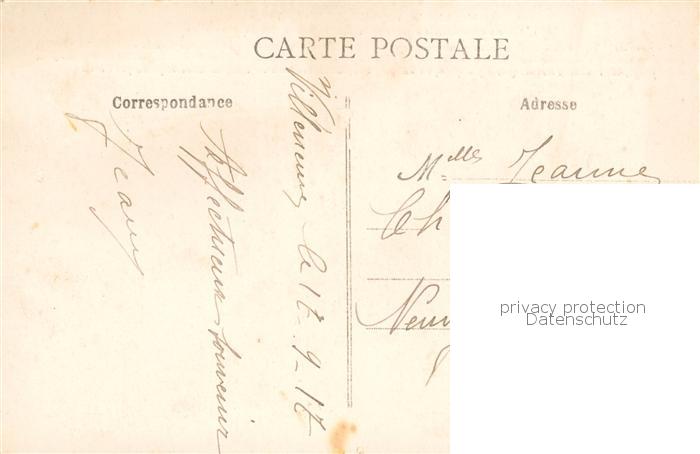 CARTE POSTALE
Correspondance
Adresse
le 17-9-17
Affectueux souvenir
Jean
Mlles Jeanne
Ch
Neuv
privacy protection
Datenschutz